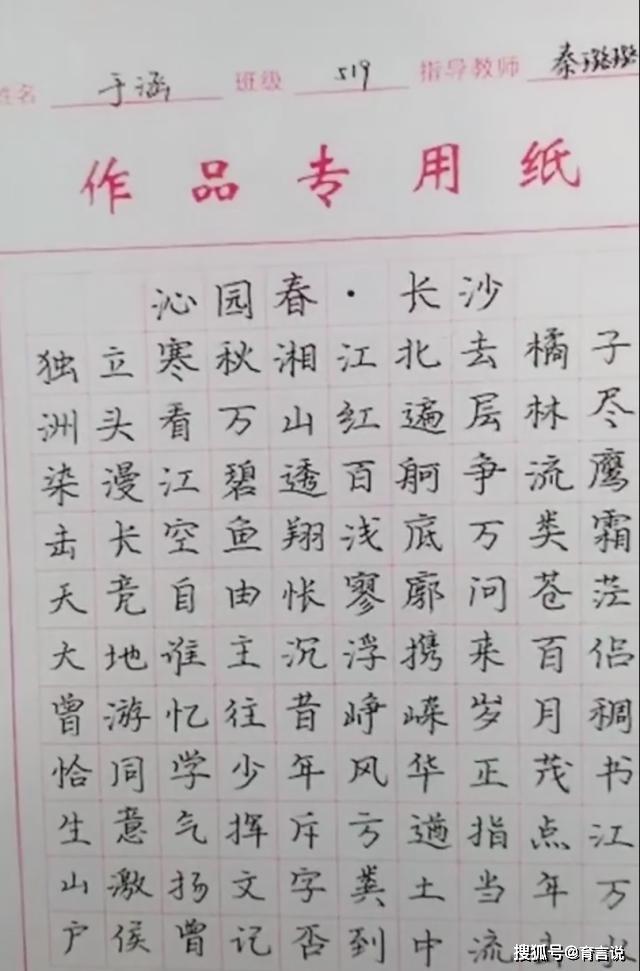 姓名 于涵 班级 519 指导教师 秦璐璐
作品专用纸
沁园春·长沙
独立寒秋湘江北去橘子
洲头看万山红遍层林尽
染漫江碧透百舸争流鹰
击长空鱼翔浅底万类霜
天竞自由怅寥廓问苍茫
大地谁主沉浮携来百侣
曾游忆往昔峥嵘岁月稠
恰同学少年风华正茂书
生意气挥斥方遒指点江
山激扬文字粪土当年万
户侯曾记否到中流水
搜狐号@育言说